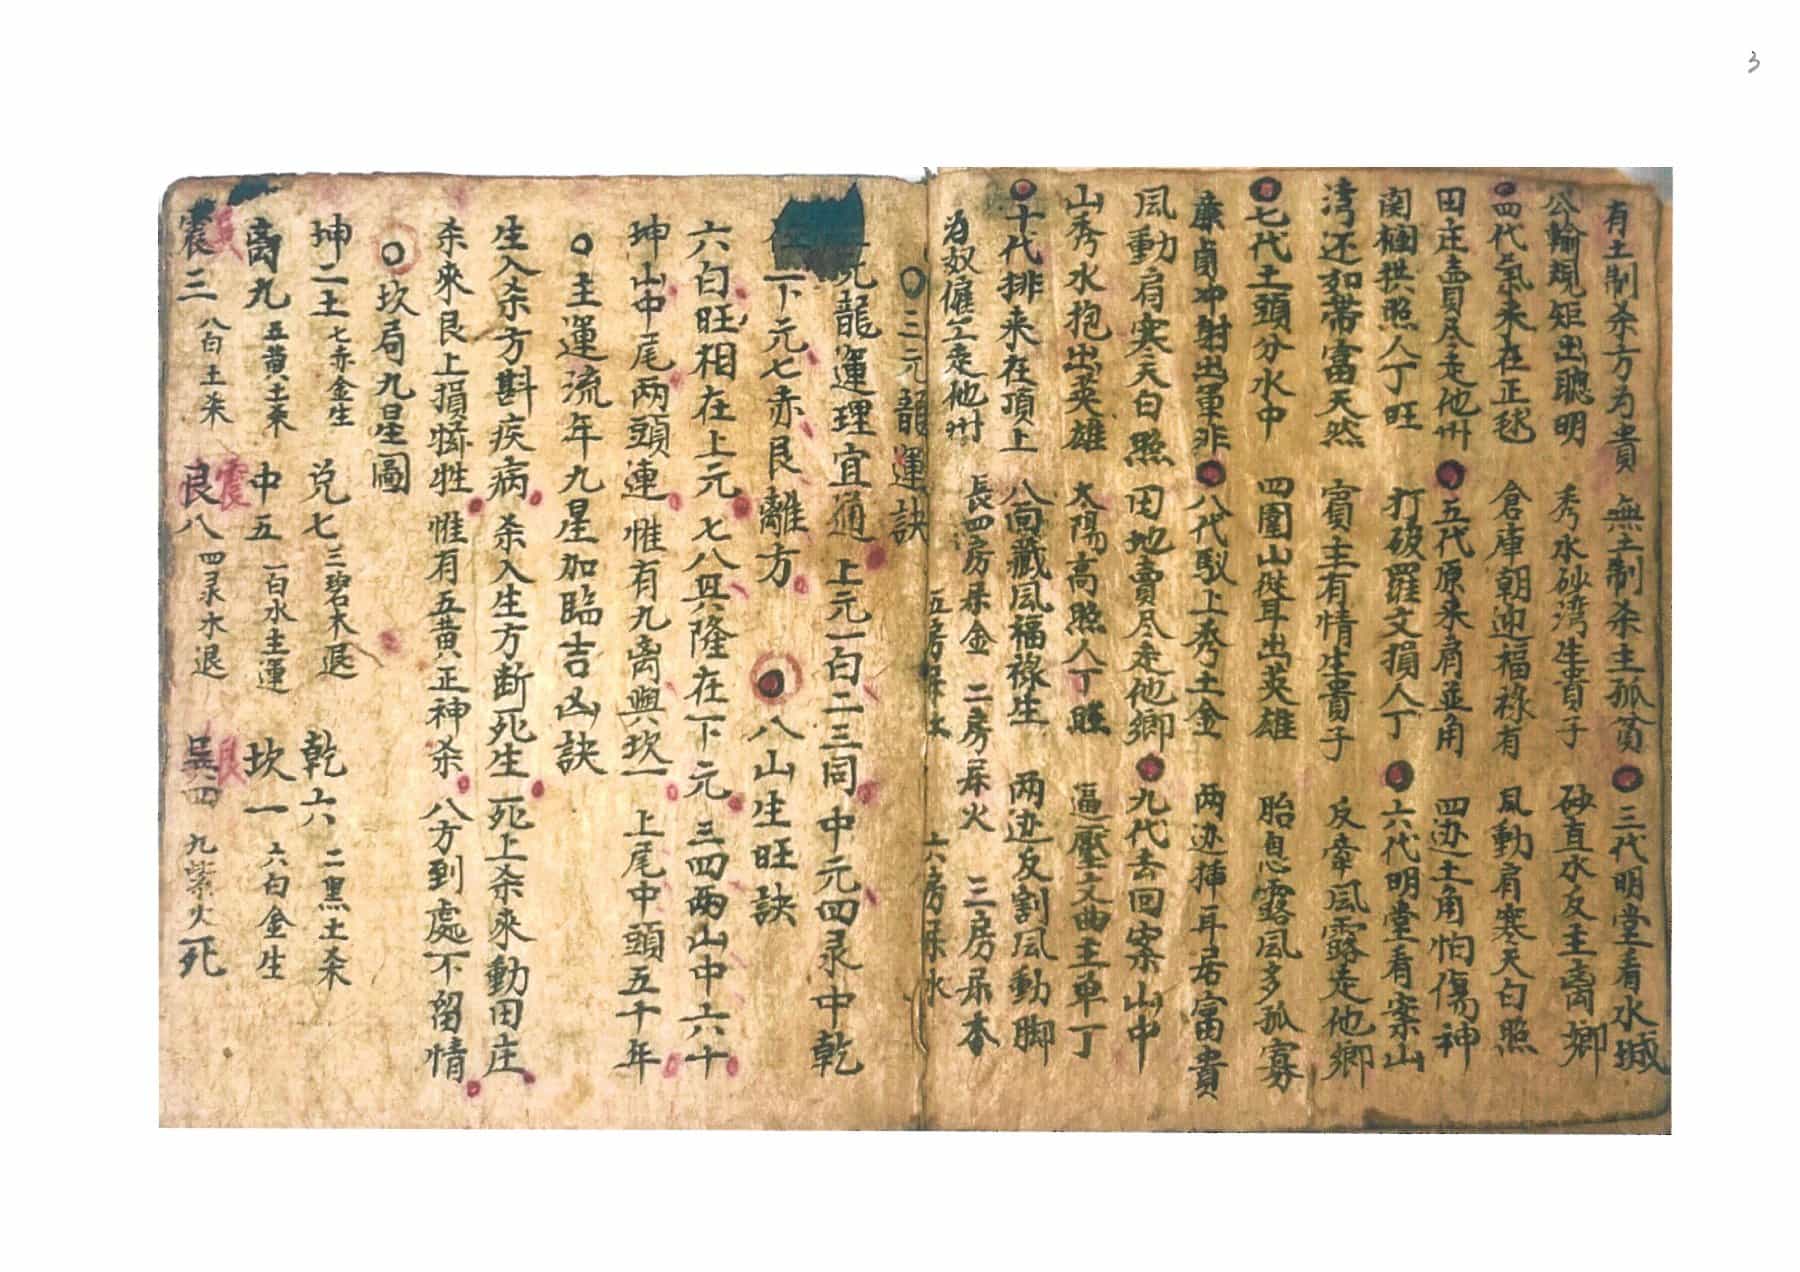 3
有土制杀方為貴 無土制杀主孤贫 三代明堂看水城
公輸規矩出聰明 秀水砂湾生貴子 砂直水反主离鄉
四代氣来在正毬 倉庫朝迎福祿有 凨動肩寒天白照
田庄賣尽走他州 五代原来肩並角 四边土角怕傷神
関欄拱照人丁旺 打破羅文損人丁 六代明堂看案山
湾还如帶富天然 賓主有情生貴子 反牵凨露走他鄉
七代土頭分水中 四圍山從耳出英雄 胎息露凨多孤寡
廉貞冲射出軍非 八代馭上秀土金 两边揷耳居富貴
凨動肩寒天白照 田地賣尽走他鄉 九代去回案山中
山秀水抱出英雄 太陽高照人丁旺 逼壓文曲主单丁
十代排来在頂上 八面藏凨福祿生 两边反割凨動脚
為奴僱工走他州 長四房屎金 二房屎火 三房屎木
五房屎土 六房屎水
三元龍運訣
元龍運理宜通 上元一白二三同 中元四彔中乾
在下元七赤艮離方 八山生旺訣
六白旺相在上元 七八興隆在下元 三四两山中六十
坤山中尾两頭連 惟有九离興坎一 上尾中頭五千年
主運流年九星加臨吉凶訣
生入杀方斟疾病 杀入生方断死生 死上杀來動田庄
杀來艮上損犠牲 惟有五黄正神杀 八方到處不留情
坎局九星圖
坤二土七赤金生 兑七三碧木退 乾六二黑土杀
离九五黄土杀 中五一白水主運 坎一六白金生
震三八白土杀 艮八四彔木退 巽四九紫火死
巽 震 艮